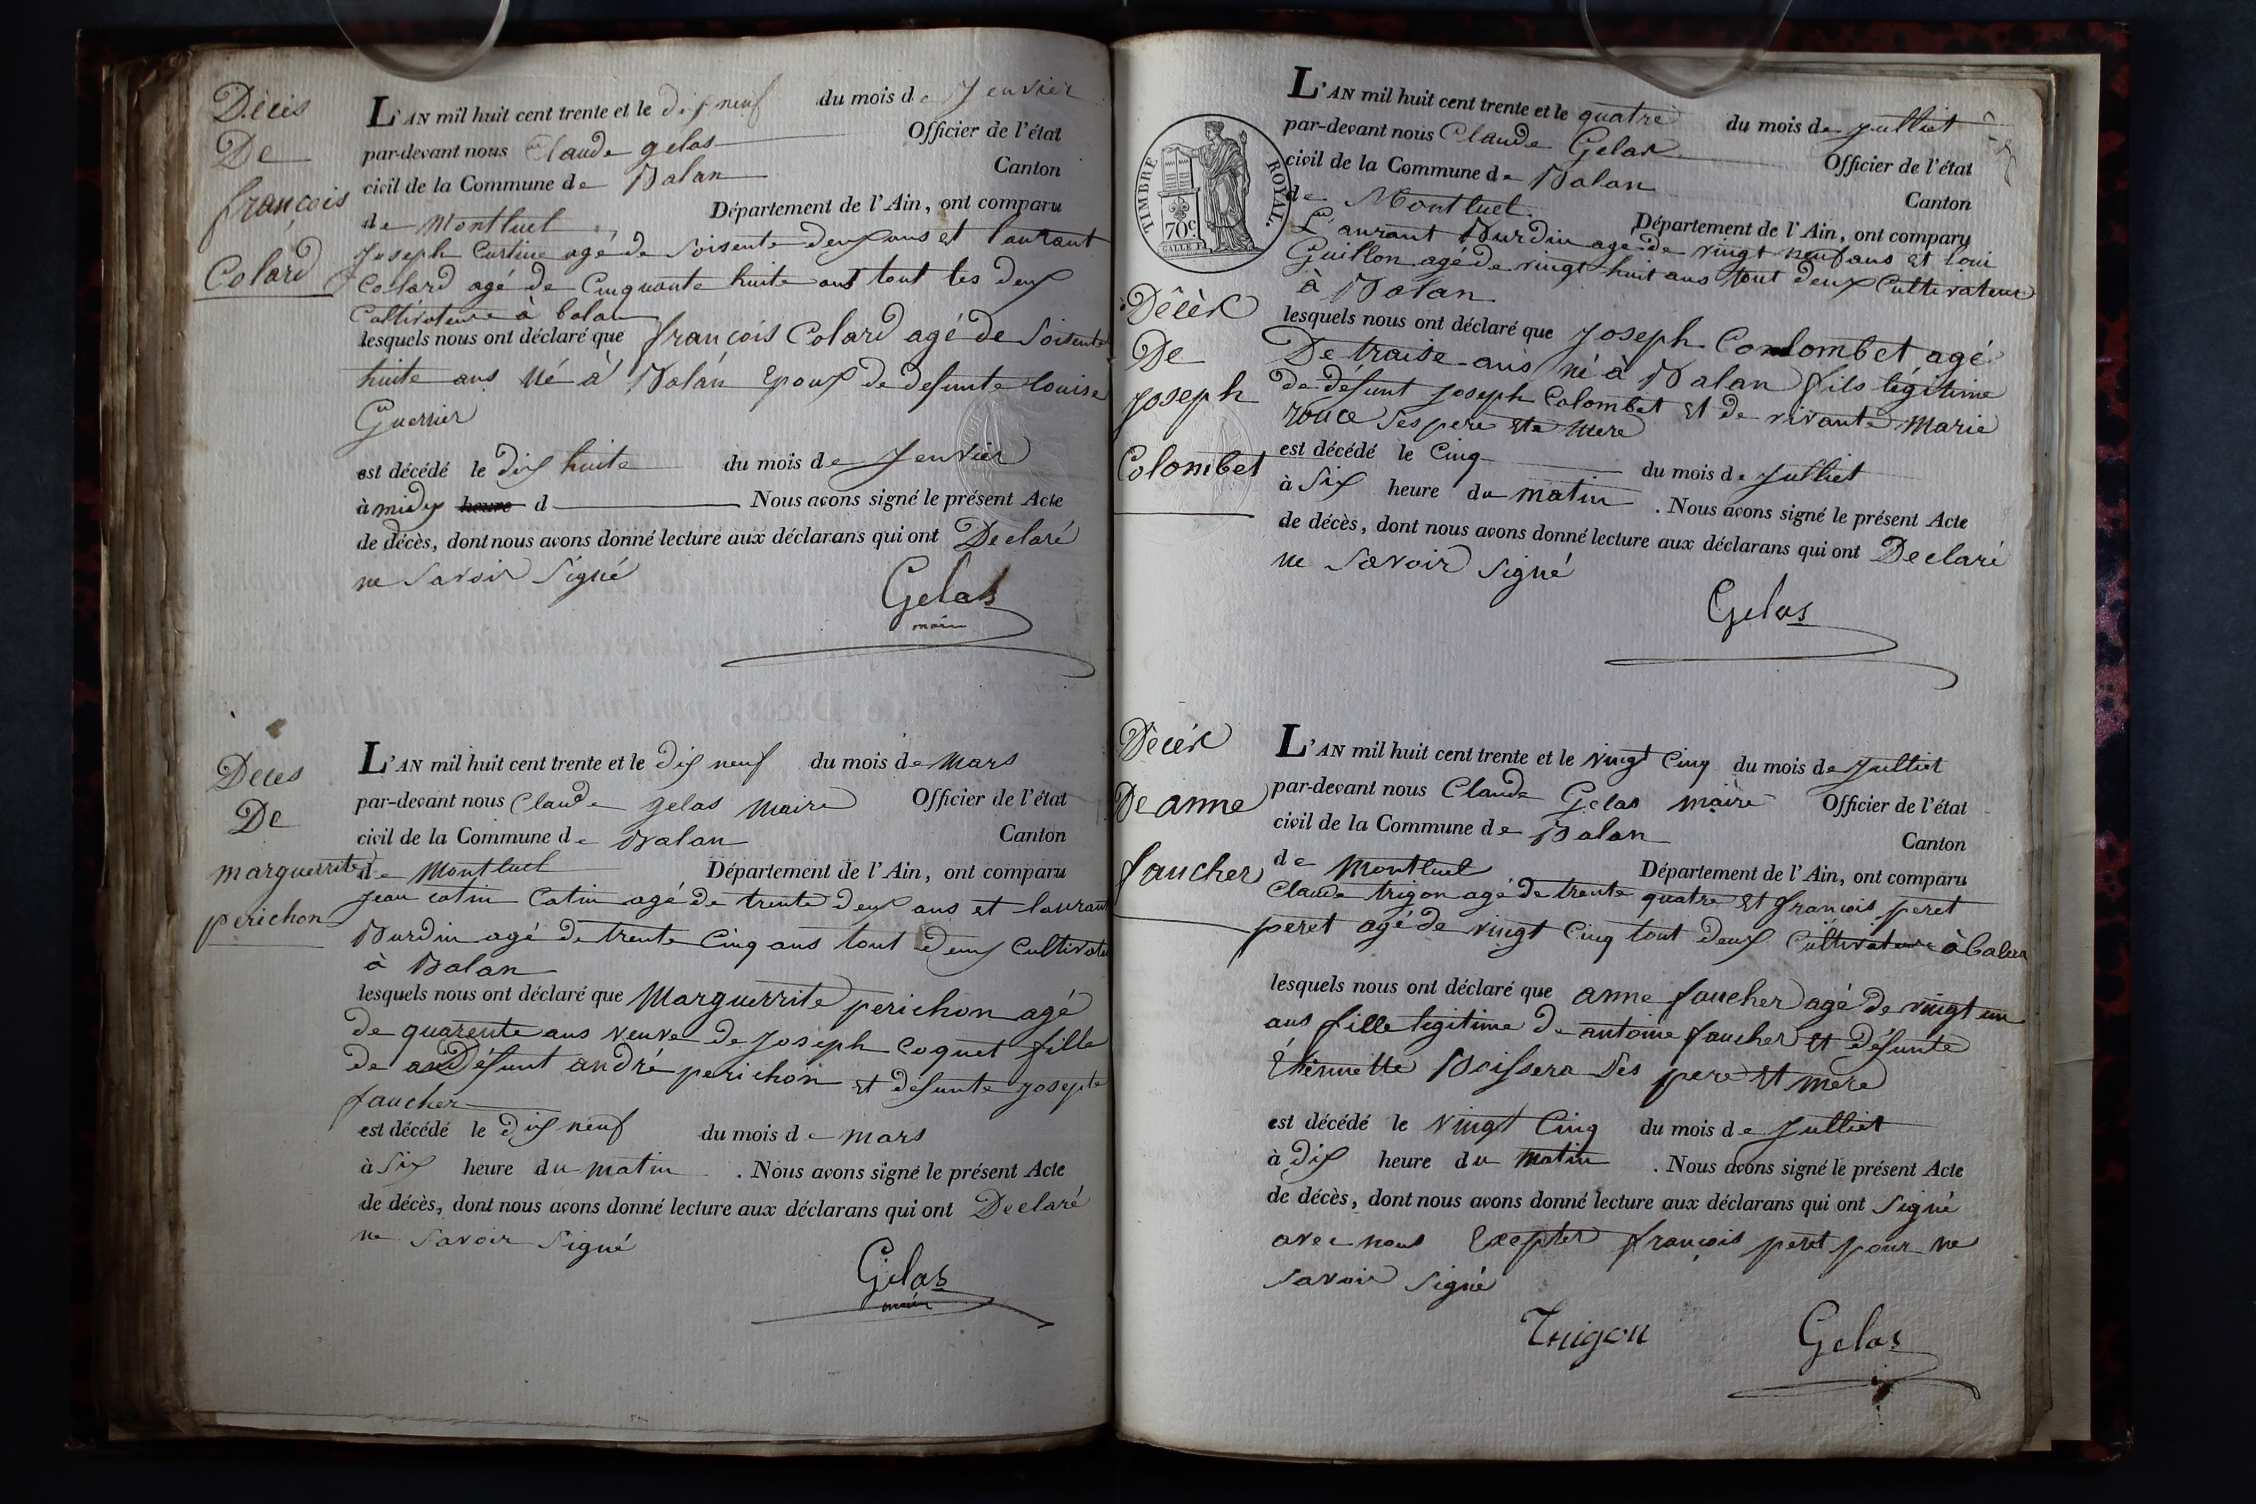 Décès
De
françois
Colard
L'AN mil huit cent trente et le dix neuf du mois de Jenvier
par-devant nous Claude gelas Officier de l'état
civil de la Commune de Balan Canton
de Montluel Département de l'Ain, ont comparu
Joseph agé de Soisente deux ans et laurant
Colard agé de Cinquante huite ans tout les deux
Cultivateure à balan
lesquels nous ont déclaré que françois Colard agé de Soisente
huite ans Né à Balan Epoux de defunte louise
Guerrier
est décédé le dix huite du mois de Jenvier
à midy heure d Nous avons signé le présent Acte
de décès, dont nous avons donné lecture aux déclarans qui ont Declaré
ne Savoir Signé
Gelas
maire
Deces
De
marguerrite
perichon
L'AN mil huit cent trente et le dix neuf du mois de Mars
par-devant nous Claude gelas Maire Officier de l'état
civil de la Commune de Balan Canton
de Montluel Département de l'Ain, ont comparu
Jean catin Catin agé de trente deux ans et laurant
Burdin agé de trente Cinq ans tout deux Cultivate
à Balan
lesquels nous ont déclaré que Marguerrite perichon agé
de quarente ans veuve de Joseph Coquet fille
de Défunt andré perichon et defunte Josepte
faucher
est décédé le dix neuf du mois de mars
à Six heure du matin . Nous avons signé le présent Acte
de décès, dont nous avons donné lecture aux déclarans qui ont Declaré
ne Savoir Signé
Gelas
maire
TIMBRE ROYAL.
70c
Décès
De
Joseph
Colombet
L'AN mil huit cent trente et le quatre du mois de Julliet
par-devant nous Claude Gelas Officier de l'état
civil de la Commune de Balan Canton
de Montluel Département de l'Ain, ont comparu
L'aurant Burdin agé de vingt neuf ans et loui
Guillon agé de vingt-huit ans tout deux Cultivateur
à Balan
lesquels nous ont déclaré que Joseph Colombet agé
De traise ans né à Balan fils légitime
de défunt Joseph Colombet et de vivante Marie
rouce Ses pere Ete Mere
est décédé le Cinq du mois de Julliet
à Six heure du matin . Nous avons signé le présent Acte
de décès, dont nous avons donné lecture aux déclarans qui ont Declaré
ne Savoir Signé
Gelas
Décès
De anne
faucher
L'AN mil huit cent trente et le vingt Cinq du mois de Julliet
par-devant nous Claude Gelas maire Officier de l'état
civil de la Commune de Balan Canton
de Montluel Département de l'Ain, ont comparu
Claude trigon agé de trente quatre et françois peret
peret agé de vingt Cinq tout deux Cultivateure à balan
lesquels nous ont déclaré que anne faucher agé de vingt un
ans fille legitime de antoine faucher et défunte
Etiennette Boissera Ses pere et mere
est décédé le vingt Cinq du mois de Julliet
à dix heure du matin . Nous avons signé le présent Acte
de décès, dont nous avons donné lecture aux déclarans qui ont Signé
avec nous Excepter françois peret pour ne
Savoir Signé
Trigon Gelas